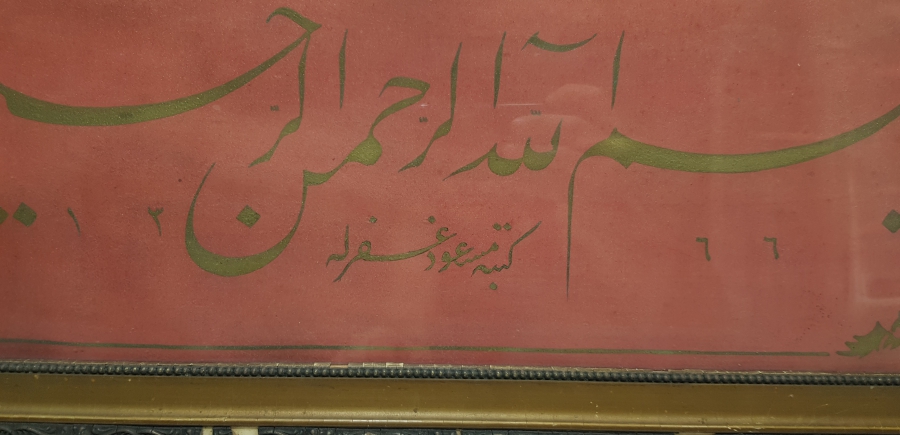 بسم الله الرحمن الرحيم
١٣ ٦٦
كتبه مسعود غفر له